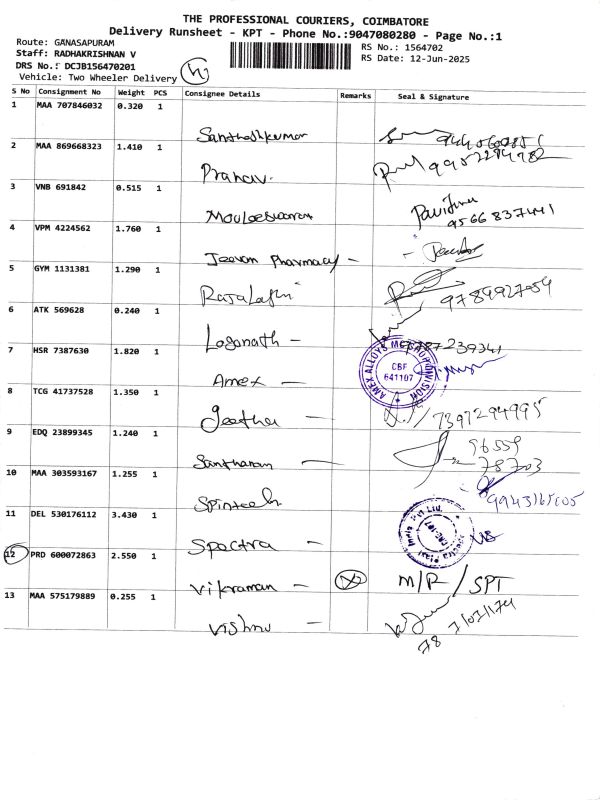 THE PROFESSIONAL COURIERS, COIMBATORE
Delivery Runsheet - KPT - Phone No.:9047080280 - Page No.:1
Route: GANASAPURAM
Staff: RADHAKRISHNAN V
DRS No.: DCJB156470201
Vehicle: Two Wheeler Delivery
RS No.: 1564702
RS Date: 12-Jun-2025
S No Consignment No Weight PCS Consignee Details Remarks Seal & Signature
1 MAA 707846032 0.320 1
Santhoshkumar
2 MAA 869668323 1.410 1
Pranav.
3 VNB 691842 0.515 1
Mouleeswaran Pavithra
9566837441
4 VPM 4224562 1.760 1
Jeevan Pharmacy -
5 GYM 1131381 1.290 1
Rajalaxmi
6 ATK 569628 0.240 1
Loganath -
7 HSR 7387630 1.820 1
Amex - AMEX ALLOYS CBF 641107
8 TCG 41737528 1.350 1
Geetha - 7397294995
9 EDQ 23899345 1.240 1
Santharam - 96559
78703
10 MAA 303593167 1.255 1
Spintech 9943165005
11 DEL 530176112 3.430 1
Spectra -
12 PRD 600072863 2.550 1
Vikraman - M/R/SPT
13 MAA 575179889 0.255 1
Vishnu -